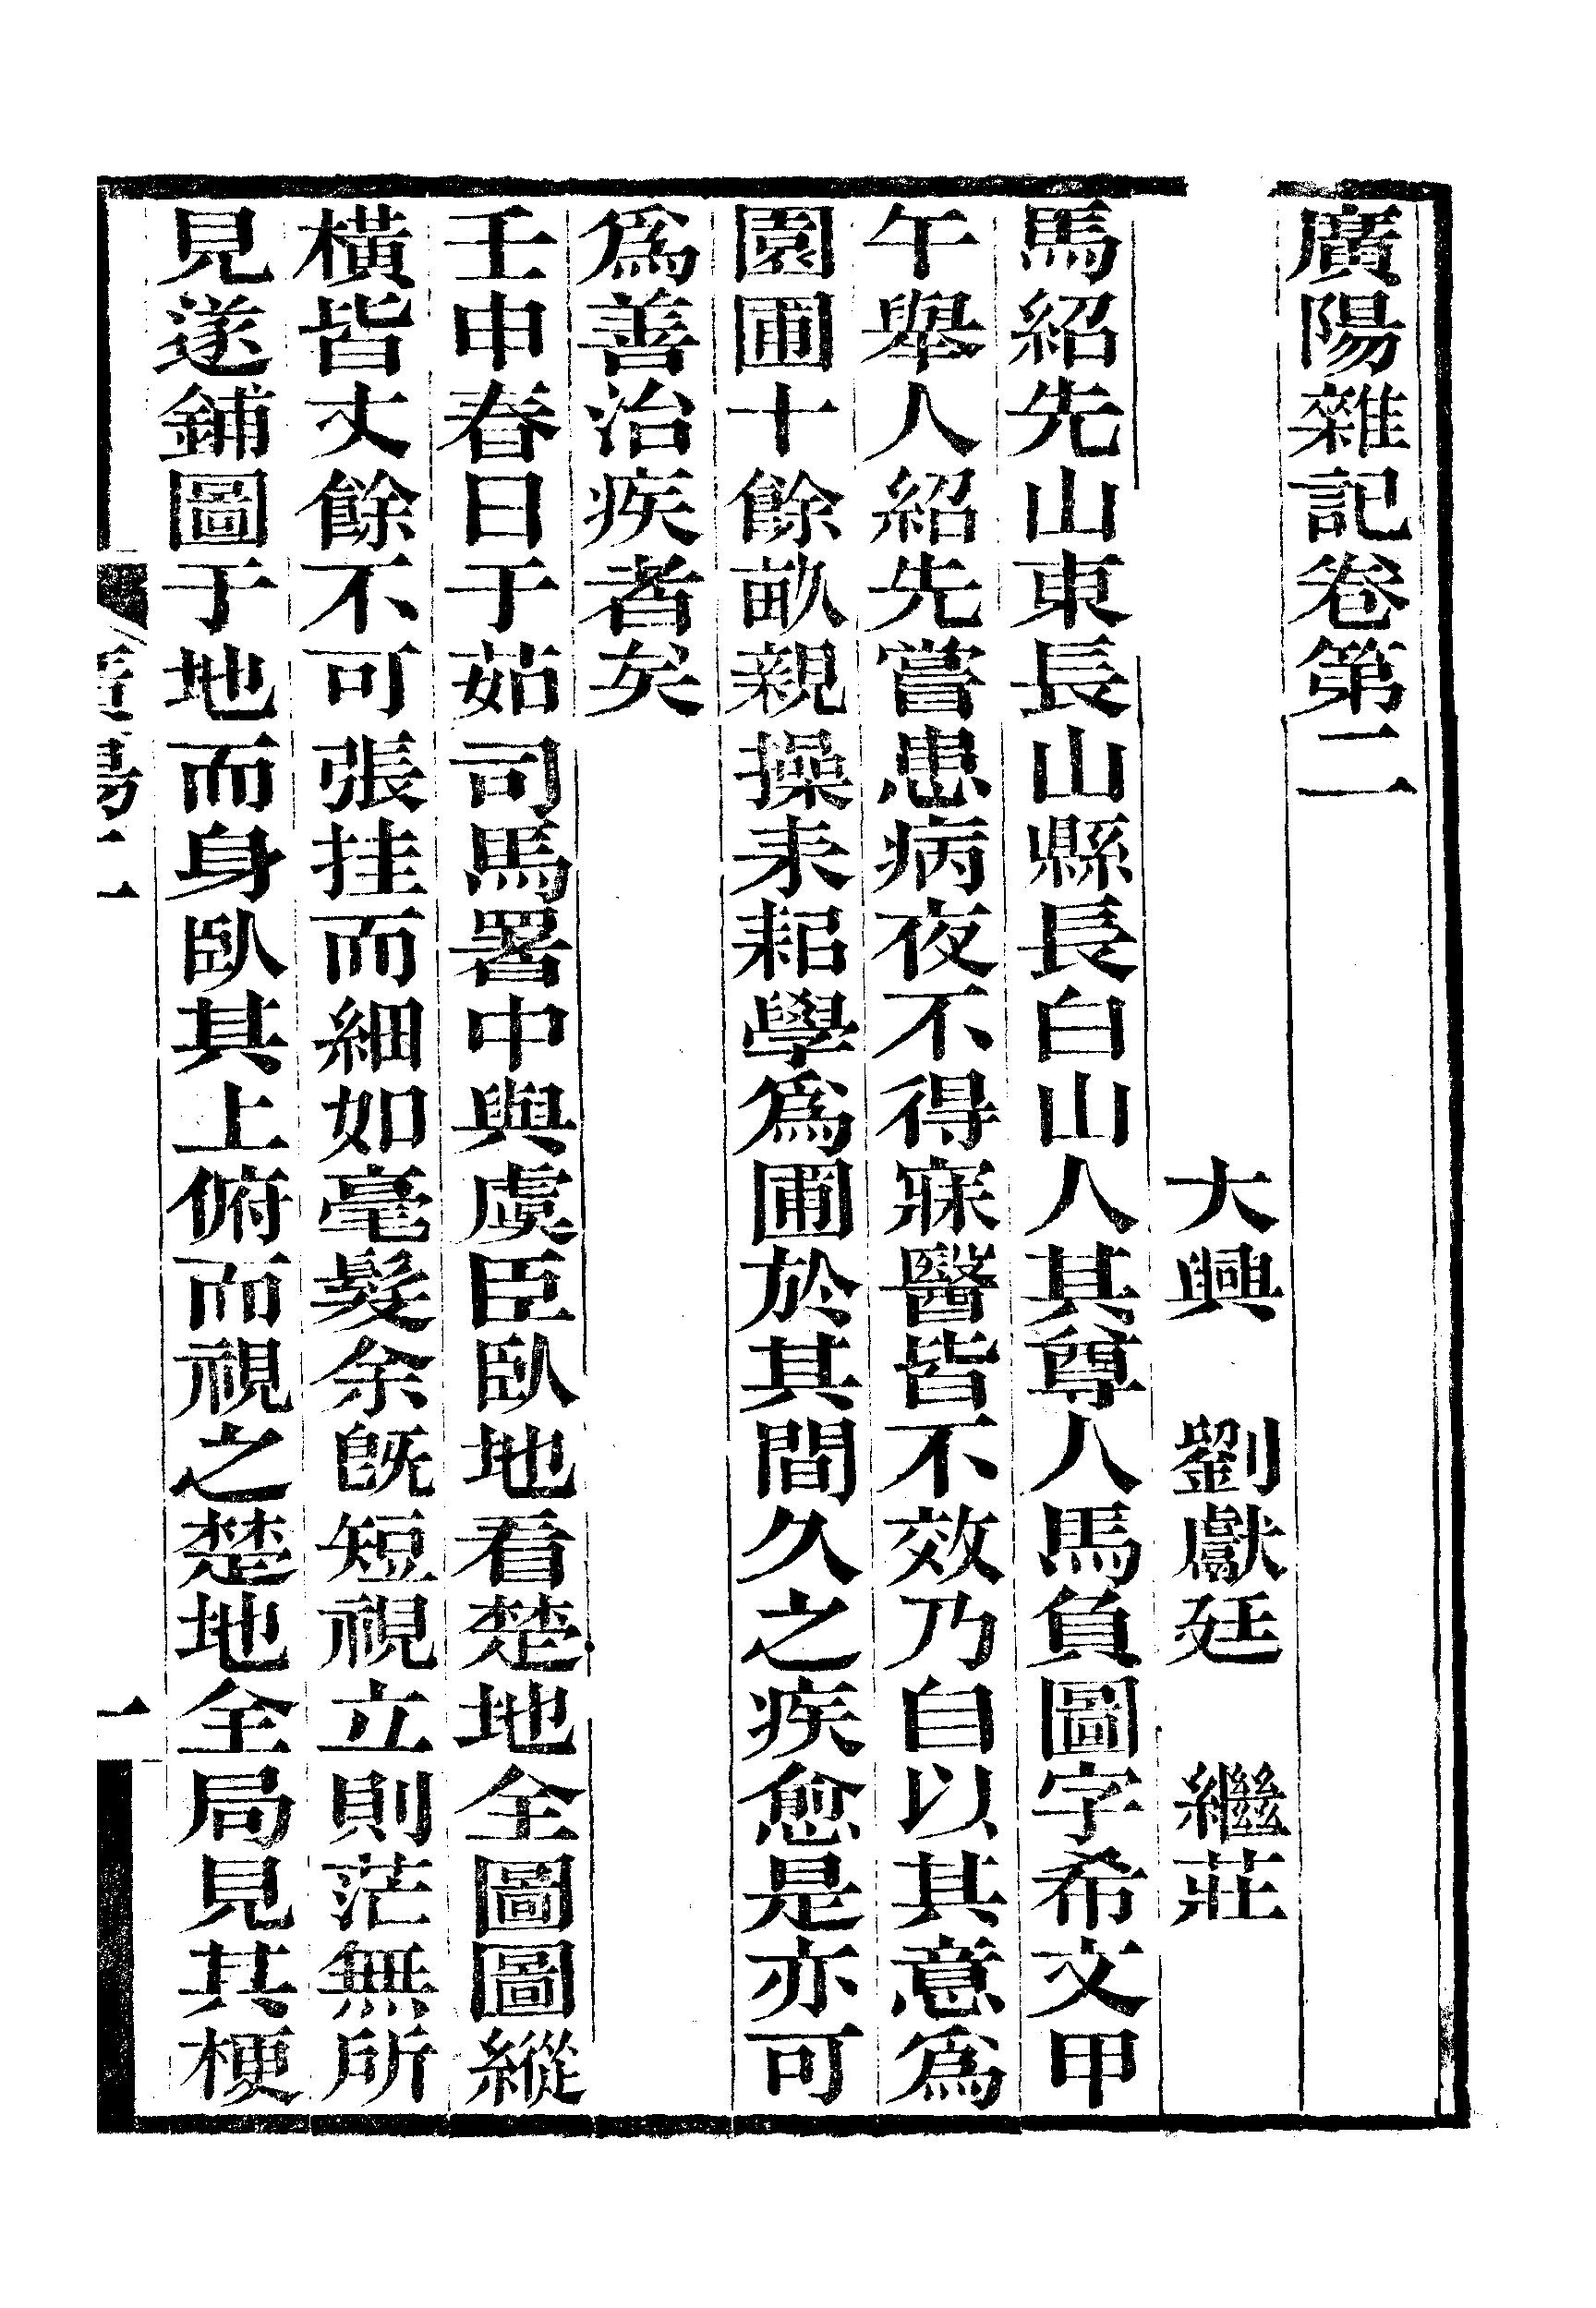 廣陽雜記卷第二
大興　劉獻廷　繼莊
馬紹先山東長山縣長白山人其尊人馬負圖字希文甲
午舉人紹先嘗患病夜不得寐醫皆不效乃自以其意為
園圃十餘畝親操耒耜學為圃於其間久之疾愈是亦可
為善治疾者矣
壬申春日于茹司馬署中與虞臣臥地看楚地全圖圖縱
橫皆丈餘不可張挂而細如毫髮余既短視立則茫無所
見遂鋪圖于地而身臥其上俯而視之楚地全局見其梗
廣陽二
一